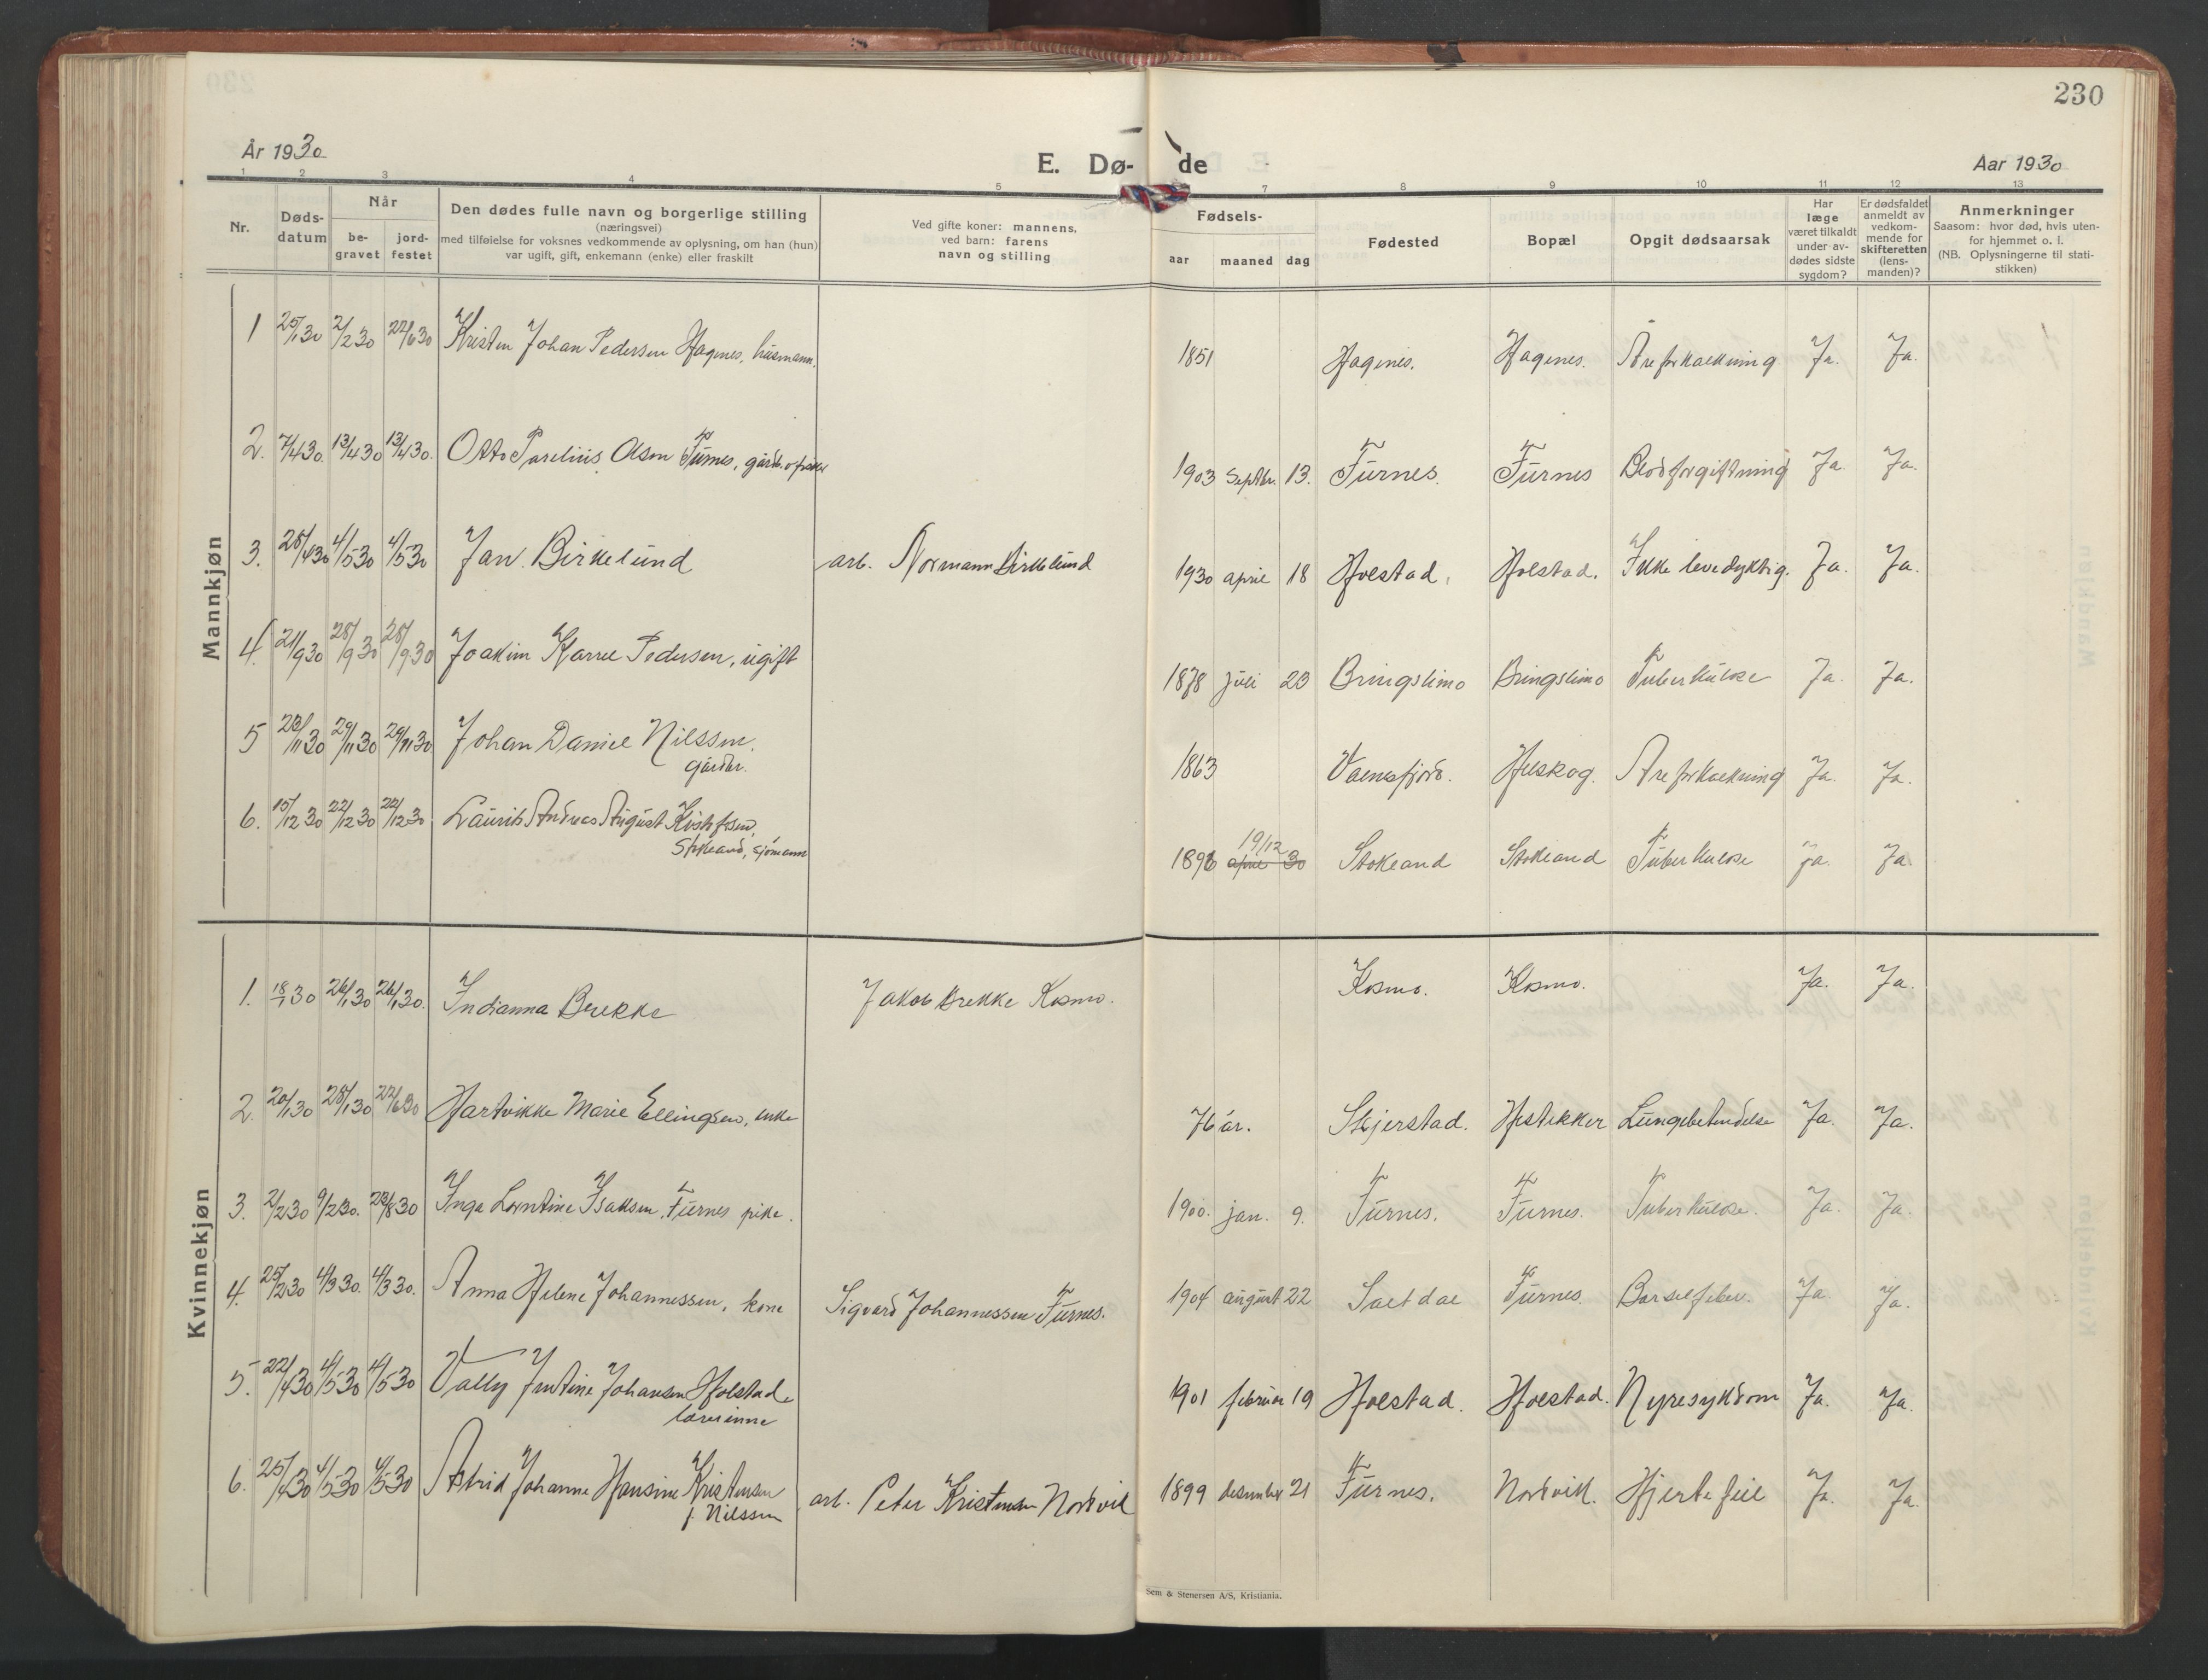 230
År 1930
E. Dø- de
Aar 1930
1 2 3 4 5 7 8 9 10 11 12 13
Nr.
Døds-
datum
Når
be-
gravet
jord-
festet
Den dødes fulle navn og borgerlige stilling
(næringsvei)
med tilføielse for voksnes vedkommende av oplysning, om han (hun)
var ugift, gift, enkemann (enke) eller fraskilt
Ved gifte koner: mannens,
ved barn: farens
navn og stilling
Fødsels-
aar maaned dag
Fødested
Bopæl
Opgit dødsaarsak
Har
læge
været tilkaldt
under av-
dødes sidste
sygdom?
Er dødsfaldet
anmeldt av
vedkom-
mende for
skifteretten
(lens-
manden)?
Anmerkninger
Saasom: hvor død, hvis uten-
for hjemmet o. l.
(NB. Oplysningerne til stati-
stikken)
Mannkjøn
1 25/1 30 2/2 30 22/6 30 Kristen Johan Pedersen Hagenes, husmann. 1851 Hagenes. Hagenes. Åreforkalkning Ja. Ja.
2. 7/4 30. 13/4 30 13/4 30. Otto Parelius Olsen Furnes, gårdb. o fisker 1903 Septbr. 13. Furnes. Furnes Blodforgiftning Ja. Ja.
3. 28/4 30 4/5 30 4/5 30 Jan Birkelund arb. Normann Birkelund 1930 april 18 Holstad. Holstad. Ikke levedyktig. Ja. Ja.
4. 21/9 30 28/9 30 28/9 30 Joakim Pedersen, ugift 1878 juli 23 Bringslimo Bringslimo Tuberkulose Ja. Ja.
5 23/11 30 29/11 30 29/11 30 Johan Daniel Nilssen.
gårdbr.
1863 Valnesfjord. Helskog. Åreforkalkning Ja. Ja.
6. 15/12 30 22/12 30 22/12 30 Laurits Andreas August Kristofsen,
Stokland, sjømann
19/12
1896 april 30 Stokland Stokland Tuberkulose Ja. Ja.
Kvinnekjøn
1. 18/1 30 26/1 30 26/1 30. Indianna Brekke Jakob Brekke Kosmo. Kosmo. Kosmo. Ja. Ja.
2. 20/1 30 28/1 30 22/6 30 Hartvikke Marie Ellingsen, enke 76 år. Skjerstad. Hestekker Lungebetendelse Ja. Ja.
3. 2/2 30 9/2 30. 23/8 30 Inga Lorntine Isaksen, Furnes pike. 1900. jan. 9. Furnes. Furnes. Tuberkulose. Ja. Ja.
4. 25/2 30 4/3 30. 4/3 30. Anna Helene Johannessen, kone Sigvard Johannessen Furnes. 1904 august 22 Saltdal Furnes. Barselfeber. Ja Ja.
5. 22/4 30 4/5 30 4/5 30 Vally Jentine Johansen Holstad
lærerinne
1901 februar 19 Holstad. Holstad. Nyresykdom Ja. Ja.
6. 25/4 30 4/5 30 4/5 30 Astrid Johanne Hansine Kristensen
f. Nilssen
arb. Peter Kristensen Nordvik 1899 desember 21 Furnes. Nordvik. Hjertefeil Ja. Ja.
Sem & Stenersen A/S, Kristiania.